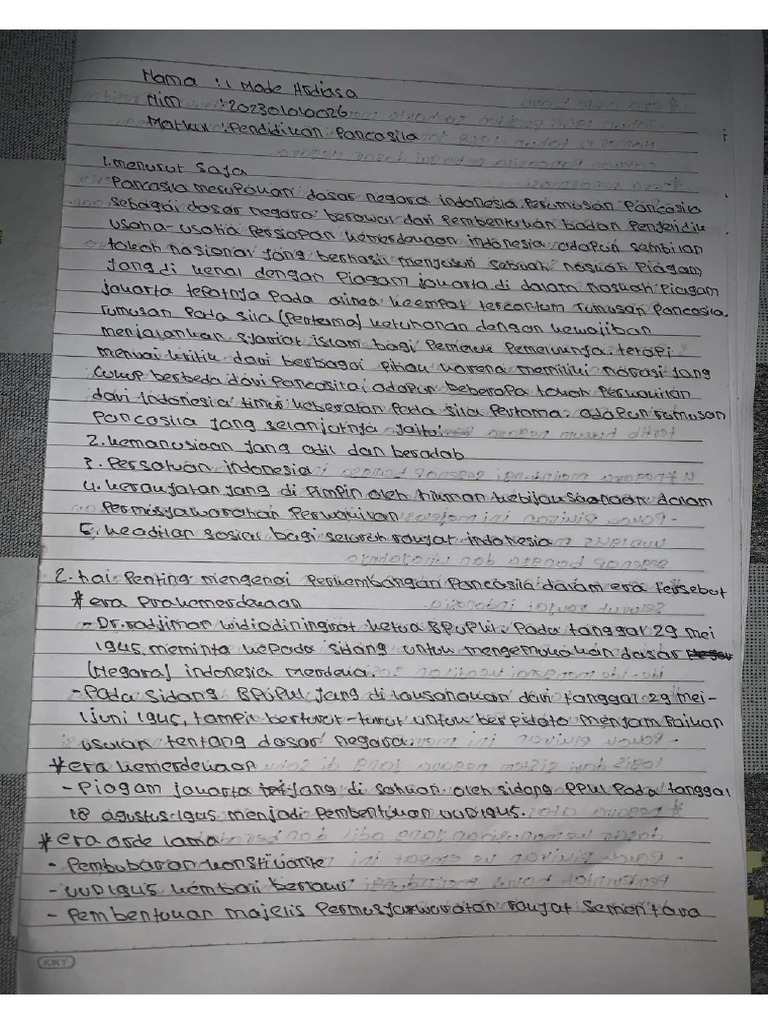 Nama : I Made Ardiasa
Nim : 202301010026
Matkul : Pendidikan Pancasila
1. menurut saya
Pancasila merupakan dasar negara indonesia. Perumusan Pancasila
sebagai dasar negara berawal dari Pembentukan badan Penyelidik
usaha-usaha Persiapan kemerdekaan indonesia adapun sembilan
tokoh nasional yang berhasil menyusun sebuah naskah Piagam
yang di kenal dengan Piagam jakarta di dalam naskah Piagam
jakarta tepatnya Pada alinea keempat tercantum rumusan Pancasila.
rumusan Pada sila (Pertama) ketuhanan dengan kewajiban
menjalankan syariat islam bagi Pemeluk Pemeluknya. tetapi
menuai kritik dari berbagai Pihak karena memiliki narasi yang
cukup berbeda dari Pancasila, adapun beberapa tokoh Perwakilan
dari indonesia timur keberatan Pada sila Pertama. adapun rumusan
Pancasila yang selanjutnya yaitu:
2. kemanusiaan yang adil dan beradab
3. Persatuan indonesia
4. kerakyatan yang di Pimpin oleh hikmat kebijaksanaan dalam
Permusyawaratan Perwakilan
5. keadilan sosial bagi seluruh rakyat indonesia
2. hal Penting mengenai Perkembangan Pancasila dalam era tersebut
* era Prakemerdekaan
- Dr. radjiman widiodiningrat ketua BPUPKI. Pada tanggal 29 mei
1945, meminta kepada sidang untuk mengemukakan dasar
(Negara) indonesia merdeka.
- Pada Sidang BPUPKI yang di laksanakan dari tanggal 29 mei-
1 juni 1945, tampil berturut-turut untuk berpidato menyampaikan
usulan tentang dasar negara.
* era kemerdekaan
- Piagam jakarta yang di sahkan oleh sidang PPKI Pada tanggal
18 agustus 1945 menjadi Pembentukan UUD 1945.
* era orde lama
- Pembubaran konstituante
- UUD 1945 kembali berlaku
- Pembentukan majelis Permusyarwaratan rakyat Sementara
KIKY